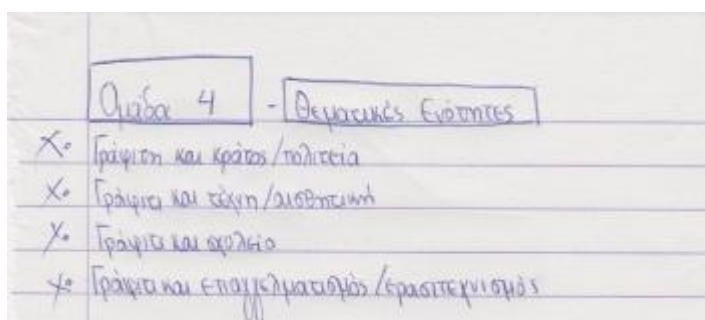 Ομάδα 4 - Θεματικές Ενότητες
Χ• Γράφιτη και κράτος/πολιτεία
Χ• Γράφιτι και τέχνη/αισθητική
Χ• Γράφιτι και σχολείο
Χ• Γράφιτι και επαγγελματισμός/ερασιτεχνισμός